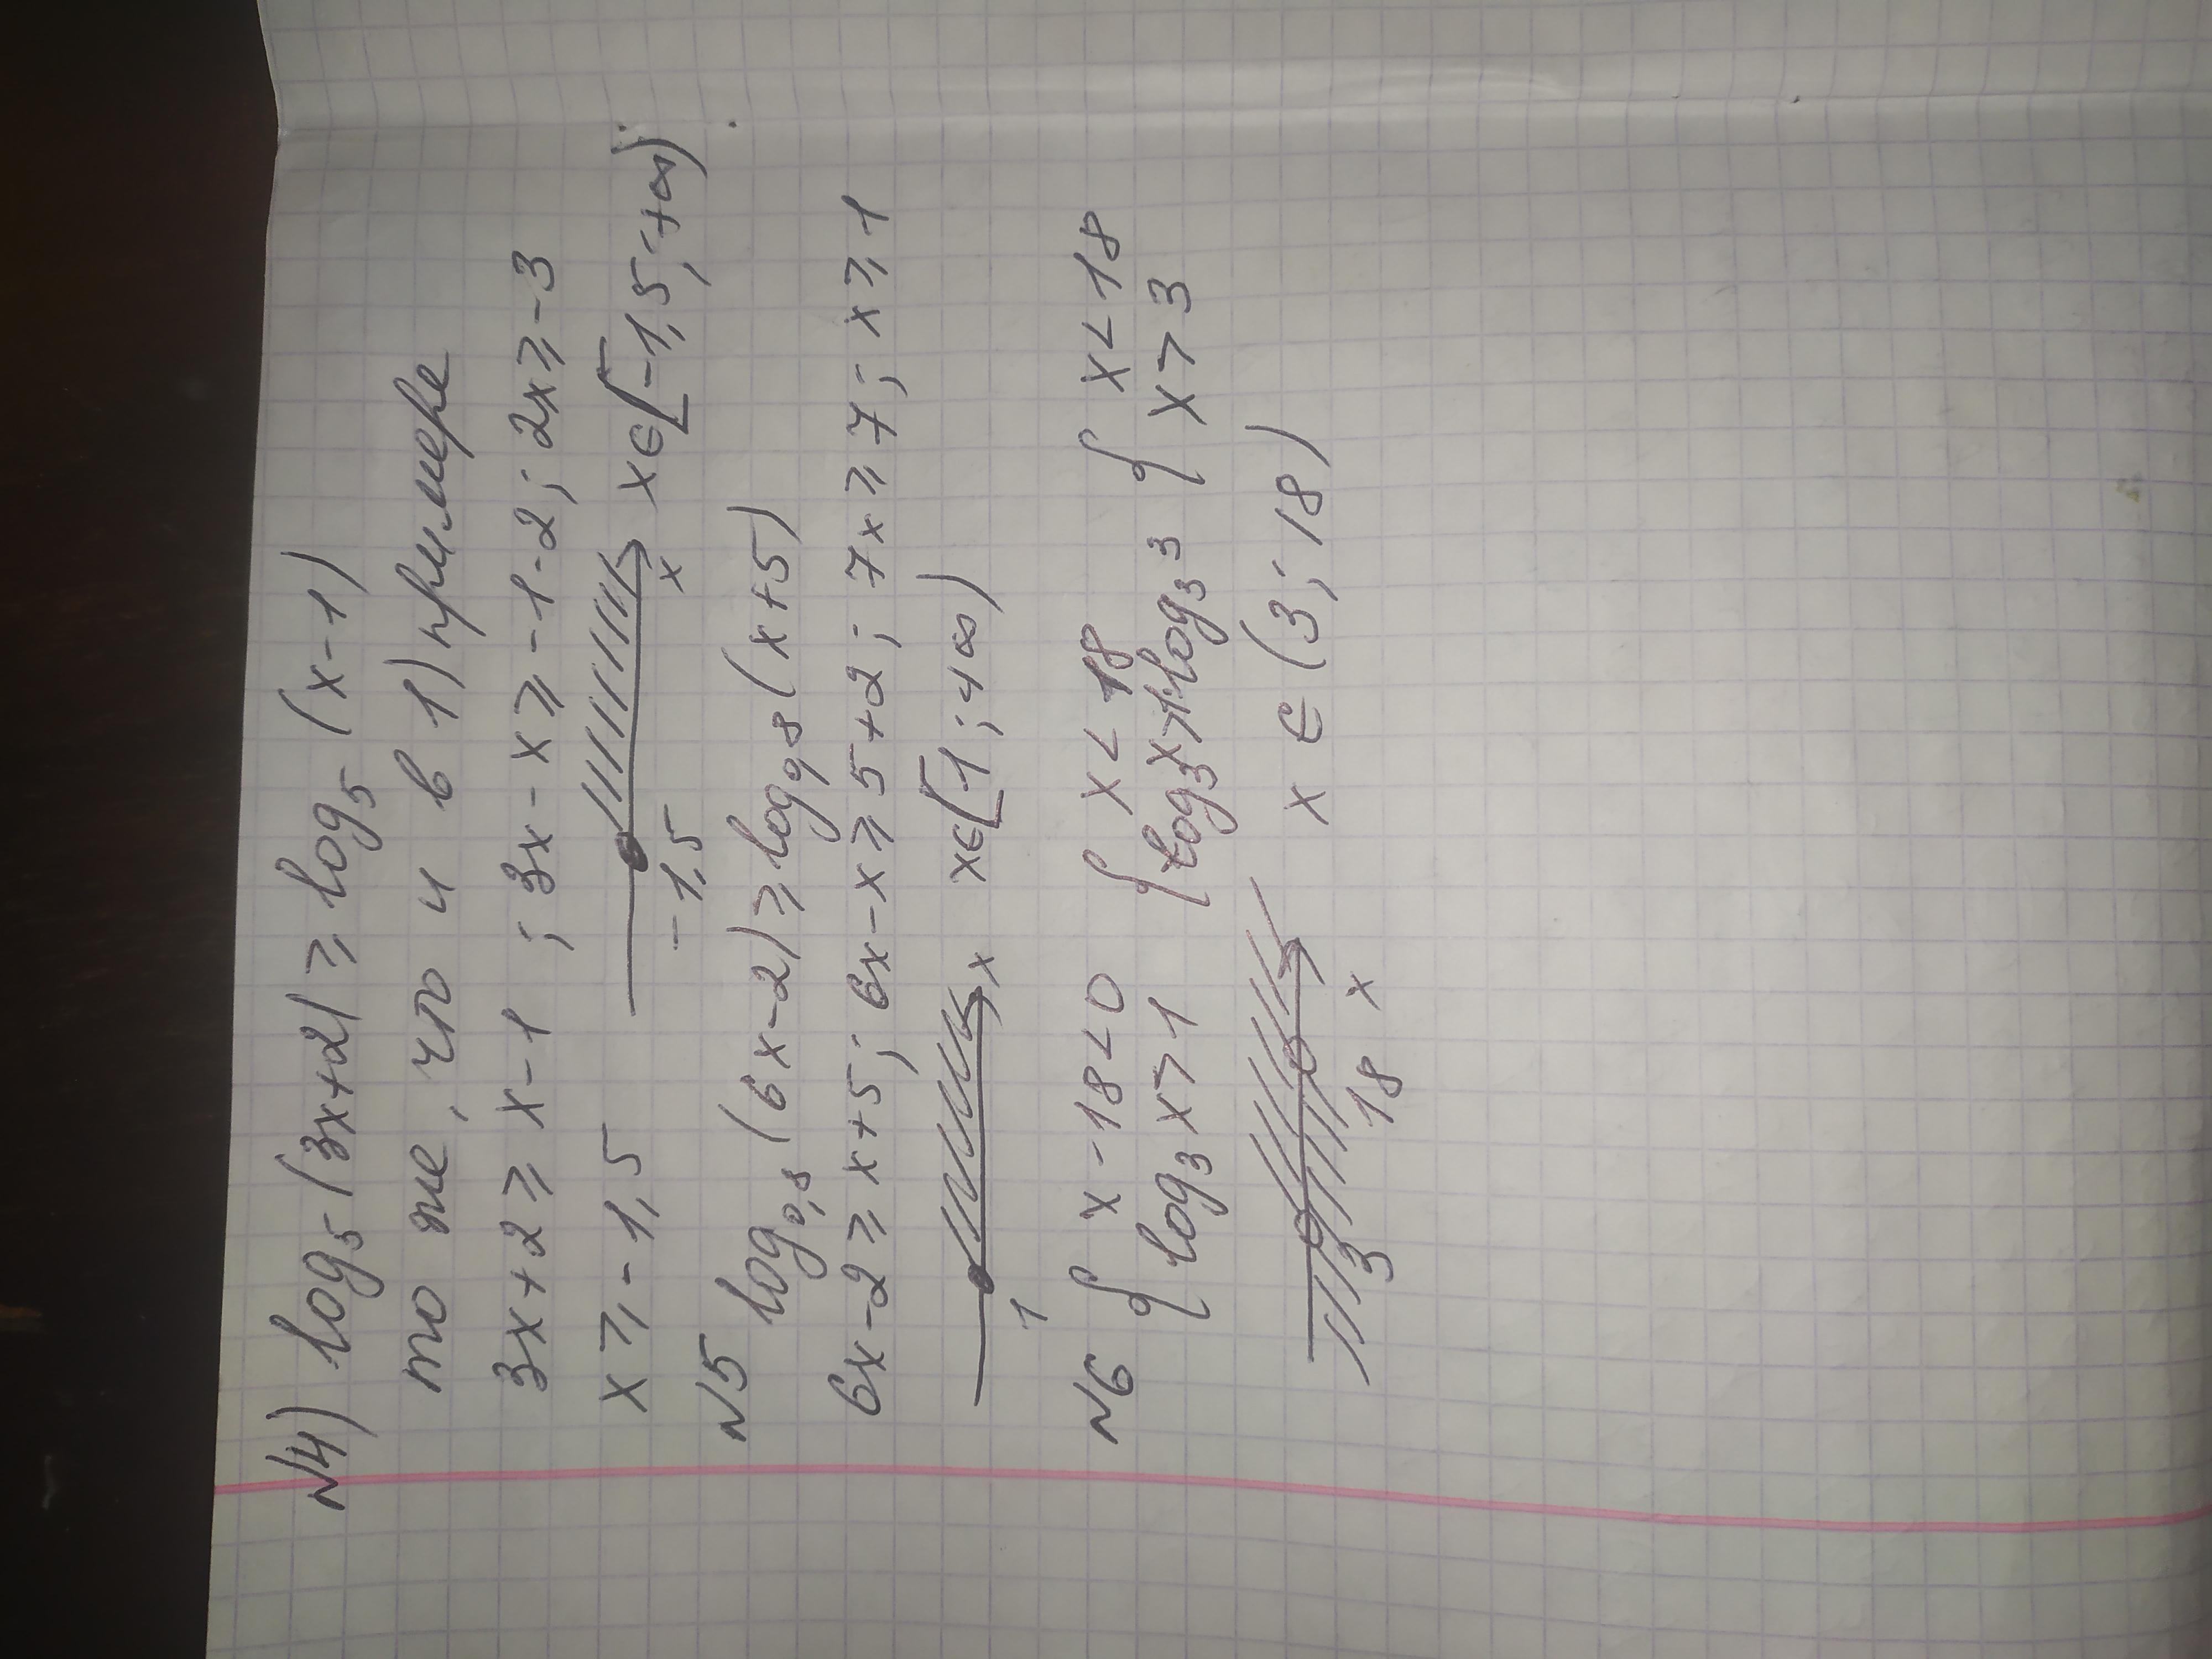 N4) log₅(3x+2) ≥ log₅(x-1)
то же, что и в 1) примере
3x+2 ≥ x-1 ; 3x-x ≥ -1-2; 2x ≥ -3
x ≥ -1,5 x∈[-1,5; +∞)
-1,5 x
N5 log₀,₈(6x-2) ≥ log₀,₈(x+5)
6x-2 ≥ x+5; 6x-x ≥ 5+2; 7x ≥ 7; x ≥ 1
1 x x∈[1; +∞)
N6 { x-18<0 { x < 18 { x<18
log₃x>1 log₃x>1·log₃3 x>3
3 18 x x ∈ (3; 18)